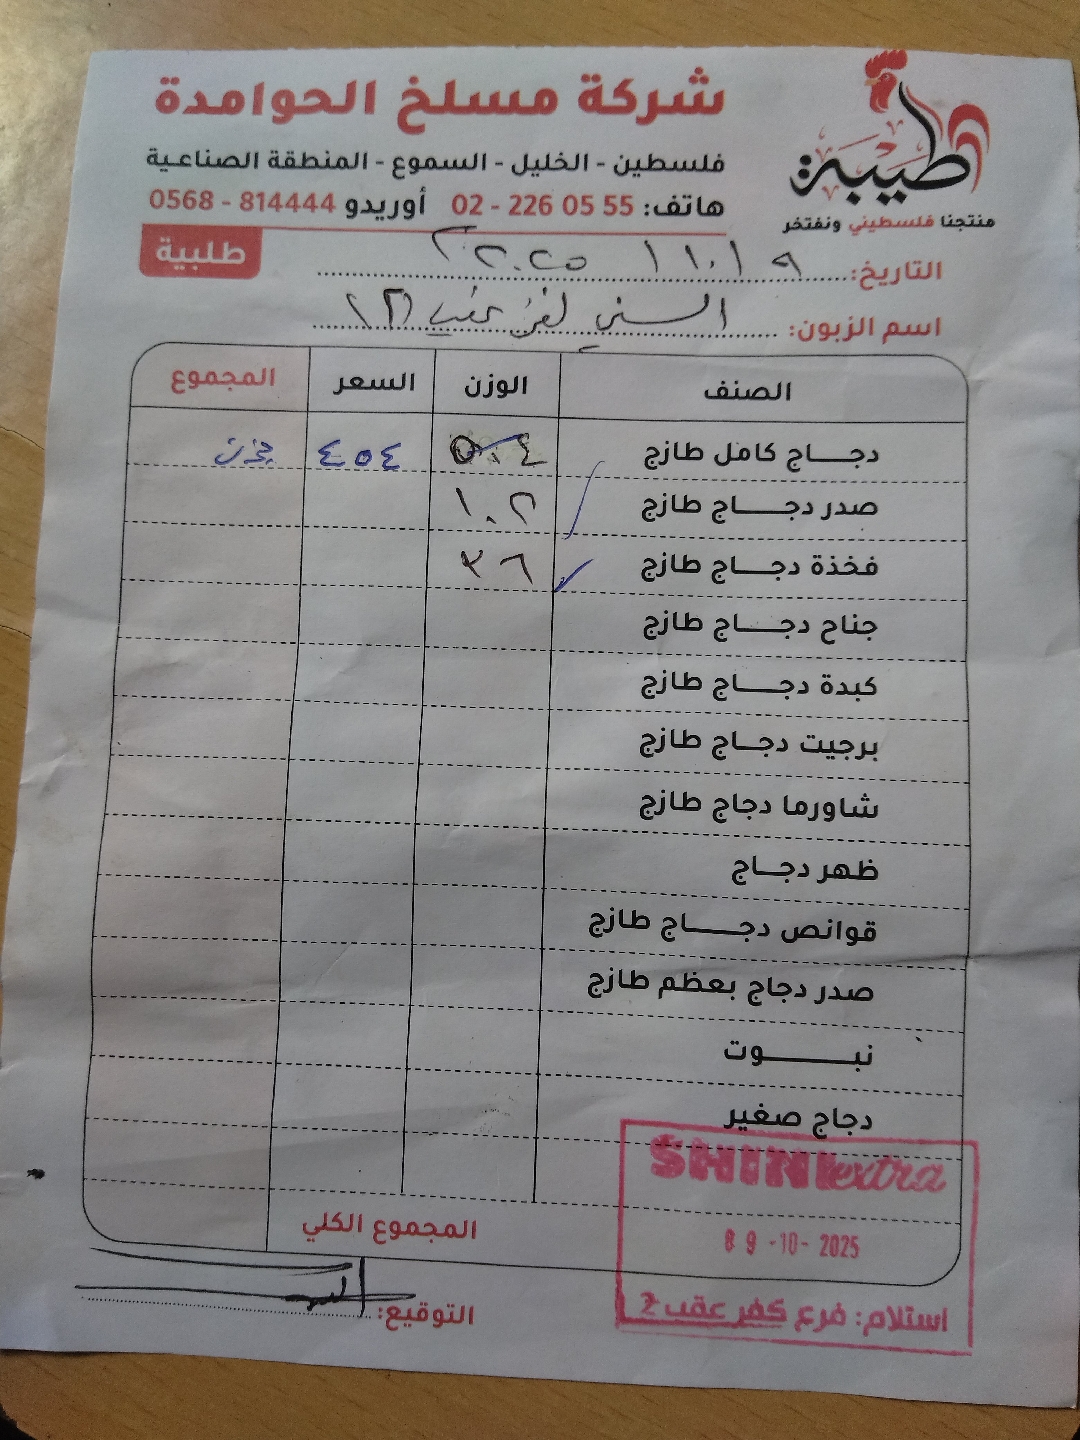 طيبة
منتجنا فلسطيني ونفتخر
شركة مسلخ الحوامدة
فلسطين - الخليل - السموع - المنطقة الصناعية
هاتف: 02 - 226 05 55 أوريدو 0568 - 814444
طلبية
التاريخ: ٩ / ١٠ / ٢٠٢٥
اسم الزبون: الشني كفر عقب (٢)
الصنف الوزن السعر المجموع
دجاج كامل طازج ٥٠٤ ٤٥٤
صدر دجاج طازج ١٠٢
فخذة دجاج طازج ٣٦
جناح دجاج طازج
كبدة دجاج طازج
برجيت دجاج طازج
شاورما دجاج طازج
ظهر دجاج
قوانص دجاج طازج
صدر دجاج بعظم طازج
نبوت
دجاج صغير
SHINI extra
المجموع الكلي
09 -10- 2025
استلام: فرع كفر عقب 2
التوقيع: